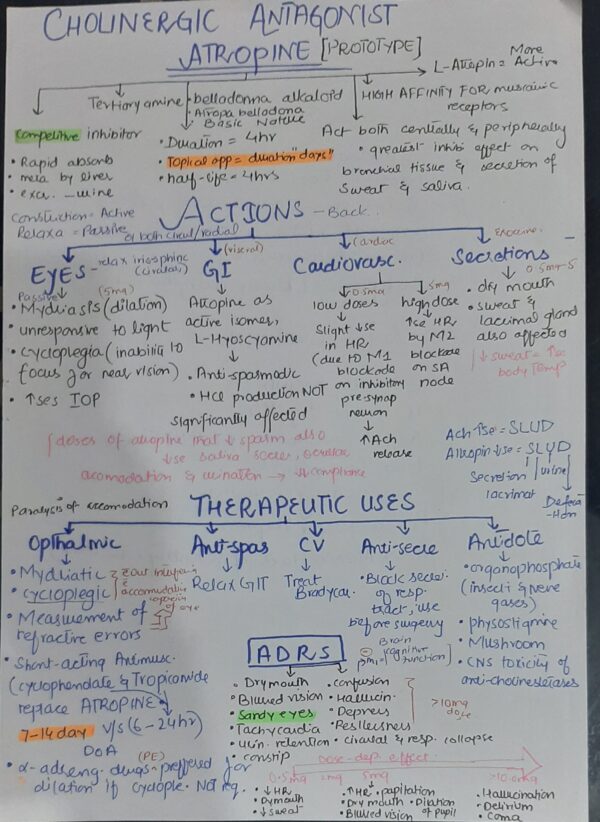 CHOLINERGIC ANTAGONIST
ATROPINE [PROTOTYPE]
L-Atropin = More Active
Tertiary amine
• belladonna alkaloid
• Atropa belladona
Basic Nature
• Duration = 4hr
• Topical app = duration "days"
• half-life = 4hrs
HIGH AFFINITY FOR muscarinic
receptors
Act both centrally & peripherally
• greatest inhib effect on
bronchial tissue & secretion of
Sweat & saliva.
Competitive inhibitor
• Rapid absorb
• meta by liver
• exc. – urine
Constriction = Active
Relaxa = Passive
of both circul/radial
ACTIONS – Back.
EYES
- relax
(circular)
Passive
(5mg)
• Mydriasis (dilation)
• unresponsive to light
• cycloplegia (inability to
focus for near vision)
• ↑ses IOP
GI
(visceral)
Atropine as
active isomer,
L-Hyoscyamine
• Anti-spasmodic
• HCl production NOT
significantly affected
Cardiovasc.
(cardiac
0.5mg
low doses
Slight ↓se
in HR
(due to M1
blockade
on inhibitory
pre-synap
neuron
↑Ach
release
5mg
high dose
↑se HR
by M2
blockade
on SA
node
Secretions
Exocrine
0.5mg-5
• dry mouth
• sweat &
lacrimal gland
also affected
↓ sweat = ↑se
body Temp
doses of atropine that ↓ spasm also
↓se saliva secre, ocular
accomodation & urination → ↓ compliance
Ach ↑se = SLUD
Atropin ↓se = SLUD
Secretion
lacrimat
urine
Defeca-
tion
Paralysis of accomodation
THERAPEUTIC USES
Opthalmic
• Mydriatic
• cycloplegic
• Measurement of
refractive errors
• Short-acting Antimusc.
(cyclophendate & Tropicamide
replace ATROPINE
7-14 day v/s (6-24hr)
DoA
(PE)
• α-adreng. drugs preffered for
dilation if cyclople. Not req.
of eye
Anti-spas
Relax GIT
CV
Treat
Bradycar.
Anti-secre
• Block secre.
of resp.
tract, use
before surgery
Brain
cognitive
function
Antidote
• organophosphate
(insecti & nerve
gases)
• physostigmine
• Mushroom
• CNS toxicity of
anti-cholinesterases
ADRS
• Dry mouth
• Blurred vision
• Sandy eyes
• Tachycardia
• urin. retention
• constip
• confusion
• Hallucin.
• Depress
• Restlessness
• circulat & resp. collapse
>10mg
dose
Dose-dep. effect
0.5mg
2mg
5mg
>10.0mg
• ↓ HR
• Dry mouth
• ↓ sweat
• ↑HR • papitation
• Dry mouth • Dilation
• Blurred vision of pupil
• Hallucination
• Delirium
• Coma